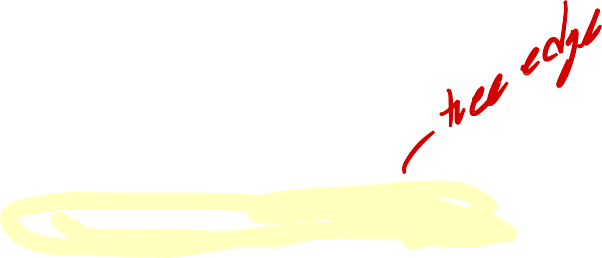 tree edge